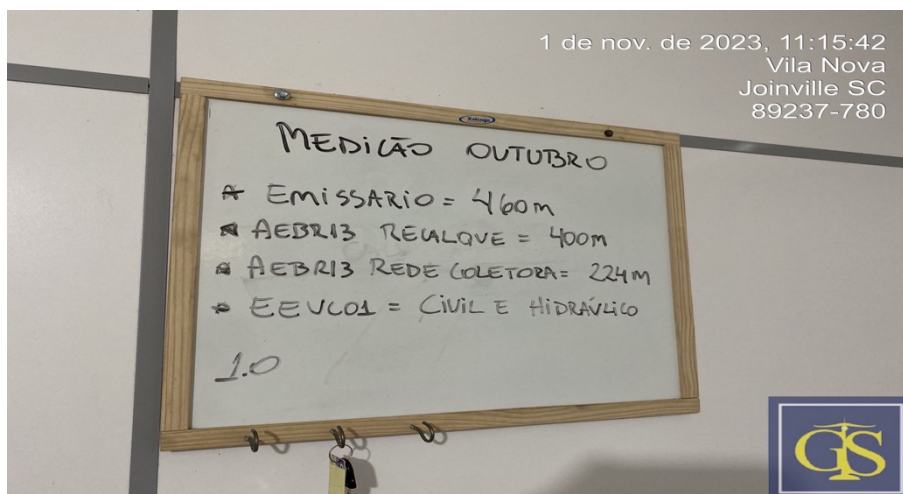 1 de nov. de 2023, 11:15:42
Vila Nova
Joinville SC
89237-780
MEDIÇÃO OUTUBRO
EMISSARIO = 460m
AEBR13 RECALQUE = 400m
AEBR13 REDE COLETORA = 224m
EEVC01 = CIVIL E HIDRÁULICO
1.0
GS